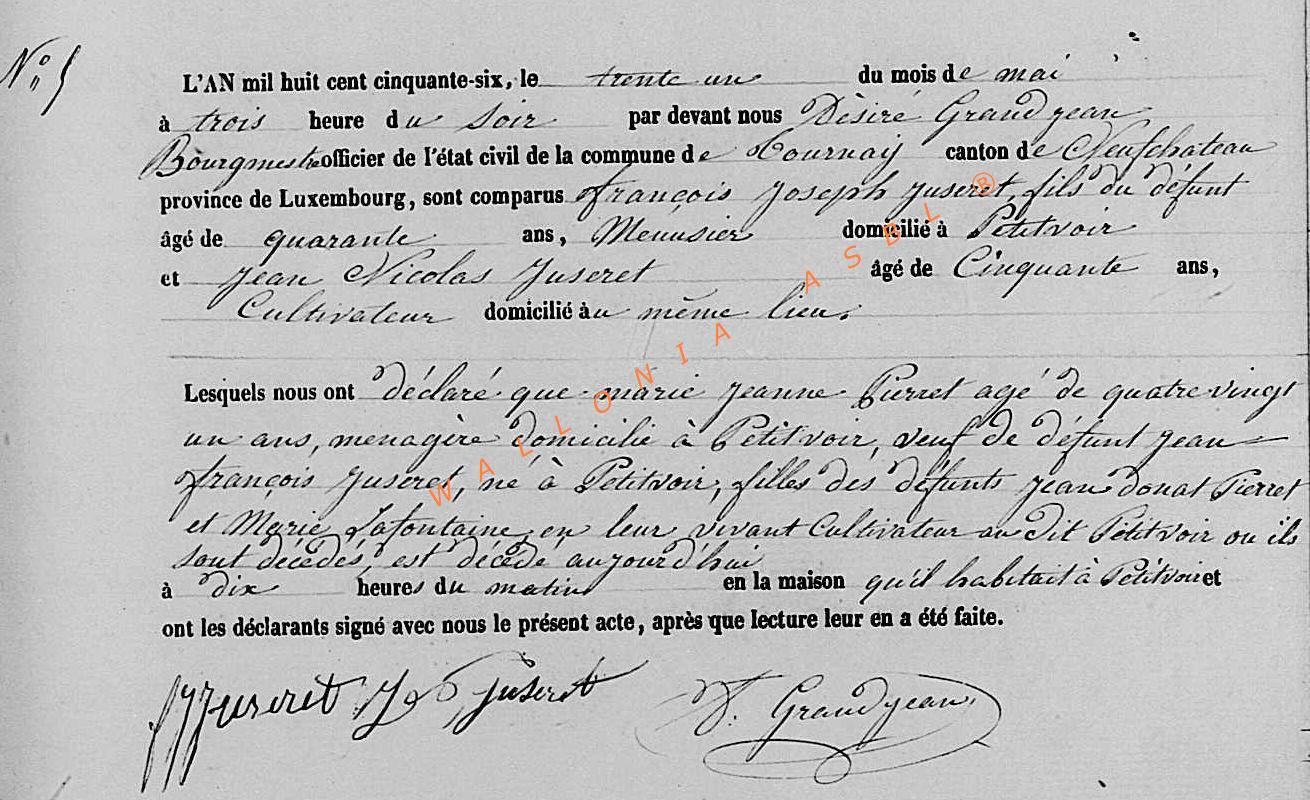 N° 5
L'AN mil huit cent cinquante-six, le trente un du mois de mai
à trois heure du soir par devant nous Dèsiré Grandjean
Bourgmestre officier de l'état civil de la commune de Tournay canton de Neufchateau
province de Luxembourg, sont comparus françois Joseph Juseret, fils du défunt
âgé de quarante ans, Menusier domicilié à Petitvoir
et Jean Nicolas Juseret âgé de Cinquante ans,
Cultivateur domicilié àu même lieu.
Lesquels nous ont déclaré que marie Jeanne Pierret agé de quatre vingt
un ans, menagère domicilié à Petitvoir, veuf de défunt Jean
françois Juseret, né à Petitvoir, filles des défunts Jean donat Pierret
et Marie Lafontaine, en leur vivant Cultivateur au dit Petitvoir ou ils
sont décédés, est décédé aujourd'hui
à dix heures du matin en la maison qu'il habitait à Petitvoir et
ont les déclarants signé avec nous le présent acte, après que lecture leur en a été faite.
Juseret J Juseret D. Grandjean
WALLONIA ASBL ®